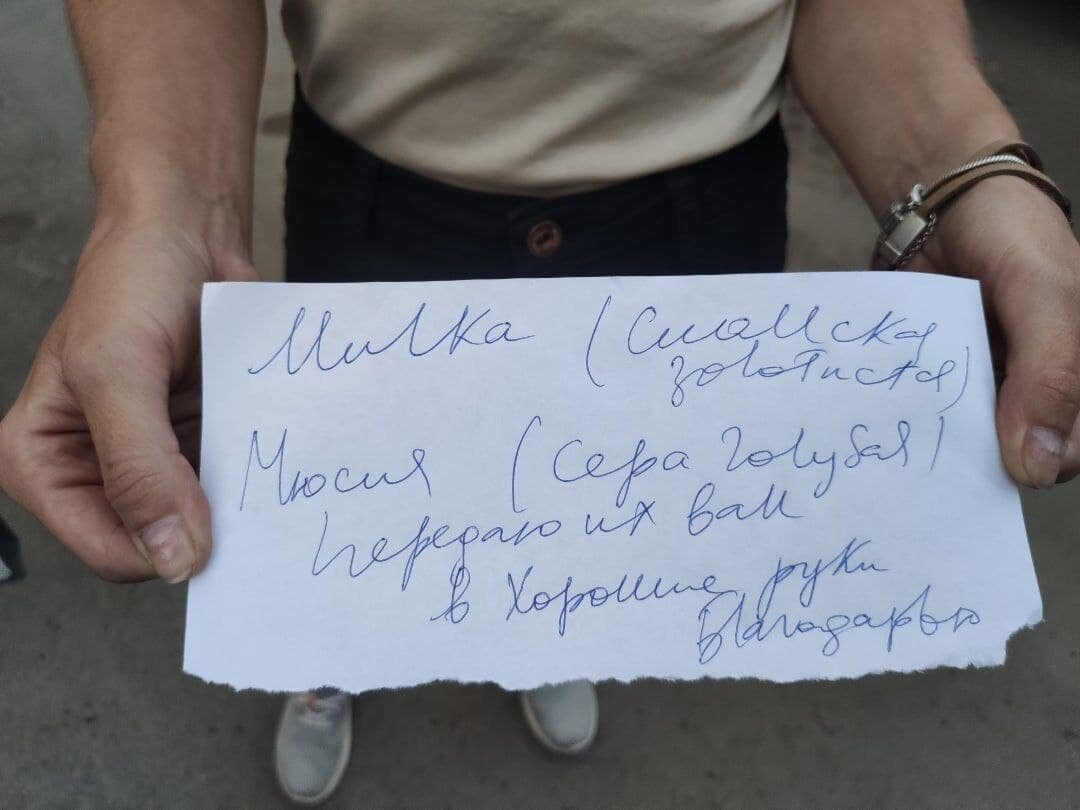 Милка (Сиамская
золотистая)
Мюсия (Сера голубая)
передаю их вам
в хорошие руки
Благодарью